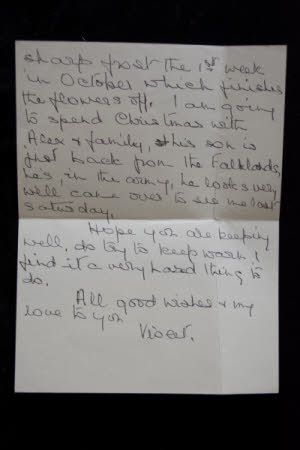 sharp frost the 1st week
in October which finishes
the flowers off. I am going
to spend Christmas with
Alex & family, this son is
just back from the Falklands,
he's, in the army, he looks very
well came over to see me last
Saturday.
Hope you are keeping
well, do try to keep warm I
find it a very hard thing to
do.
All good wishes & my
love to you
Violet.